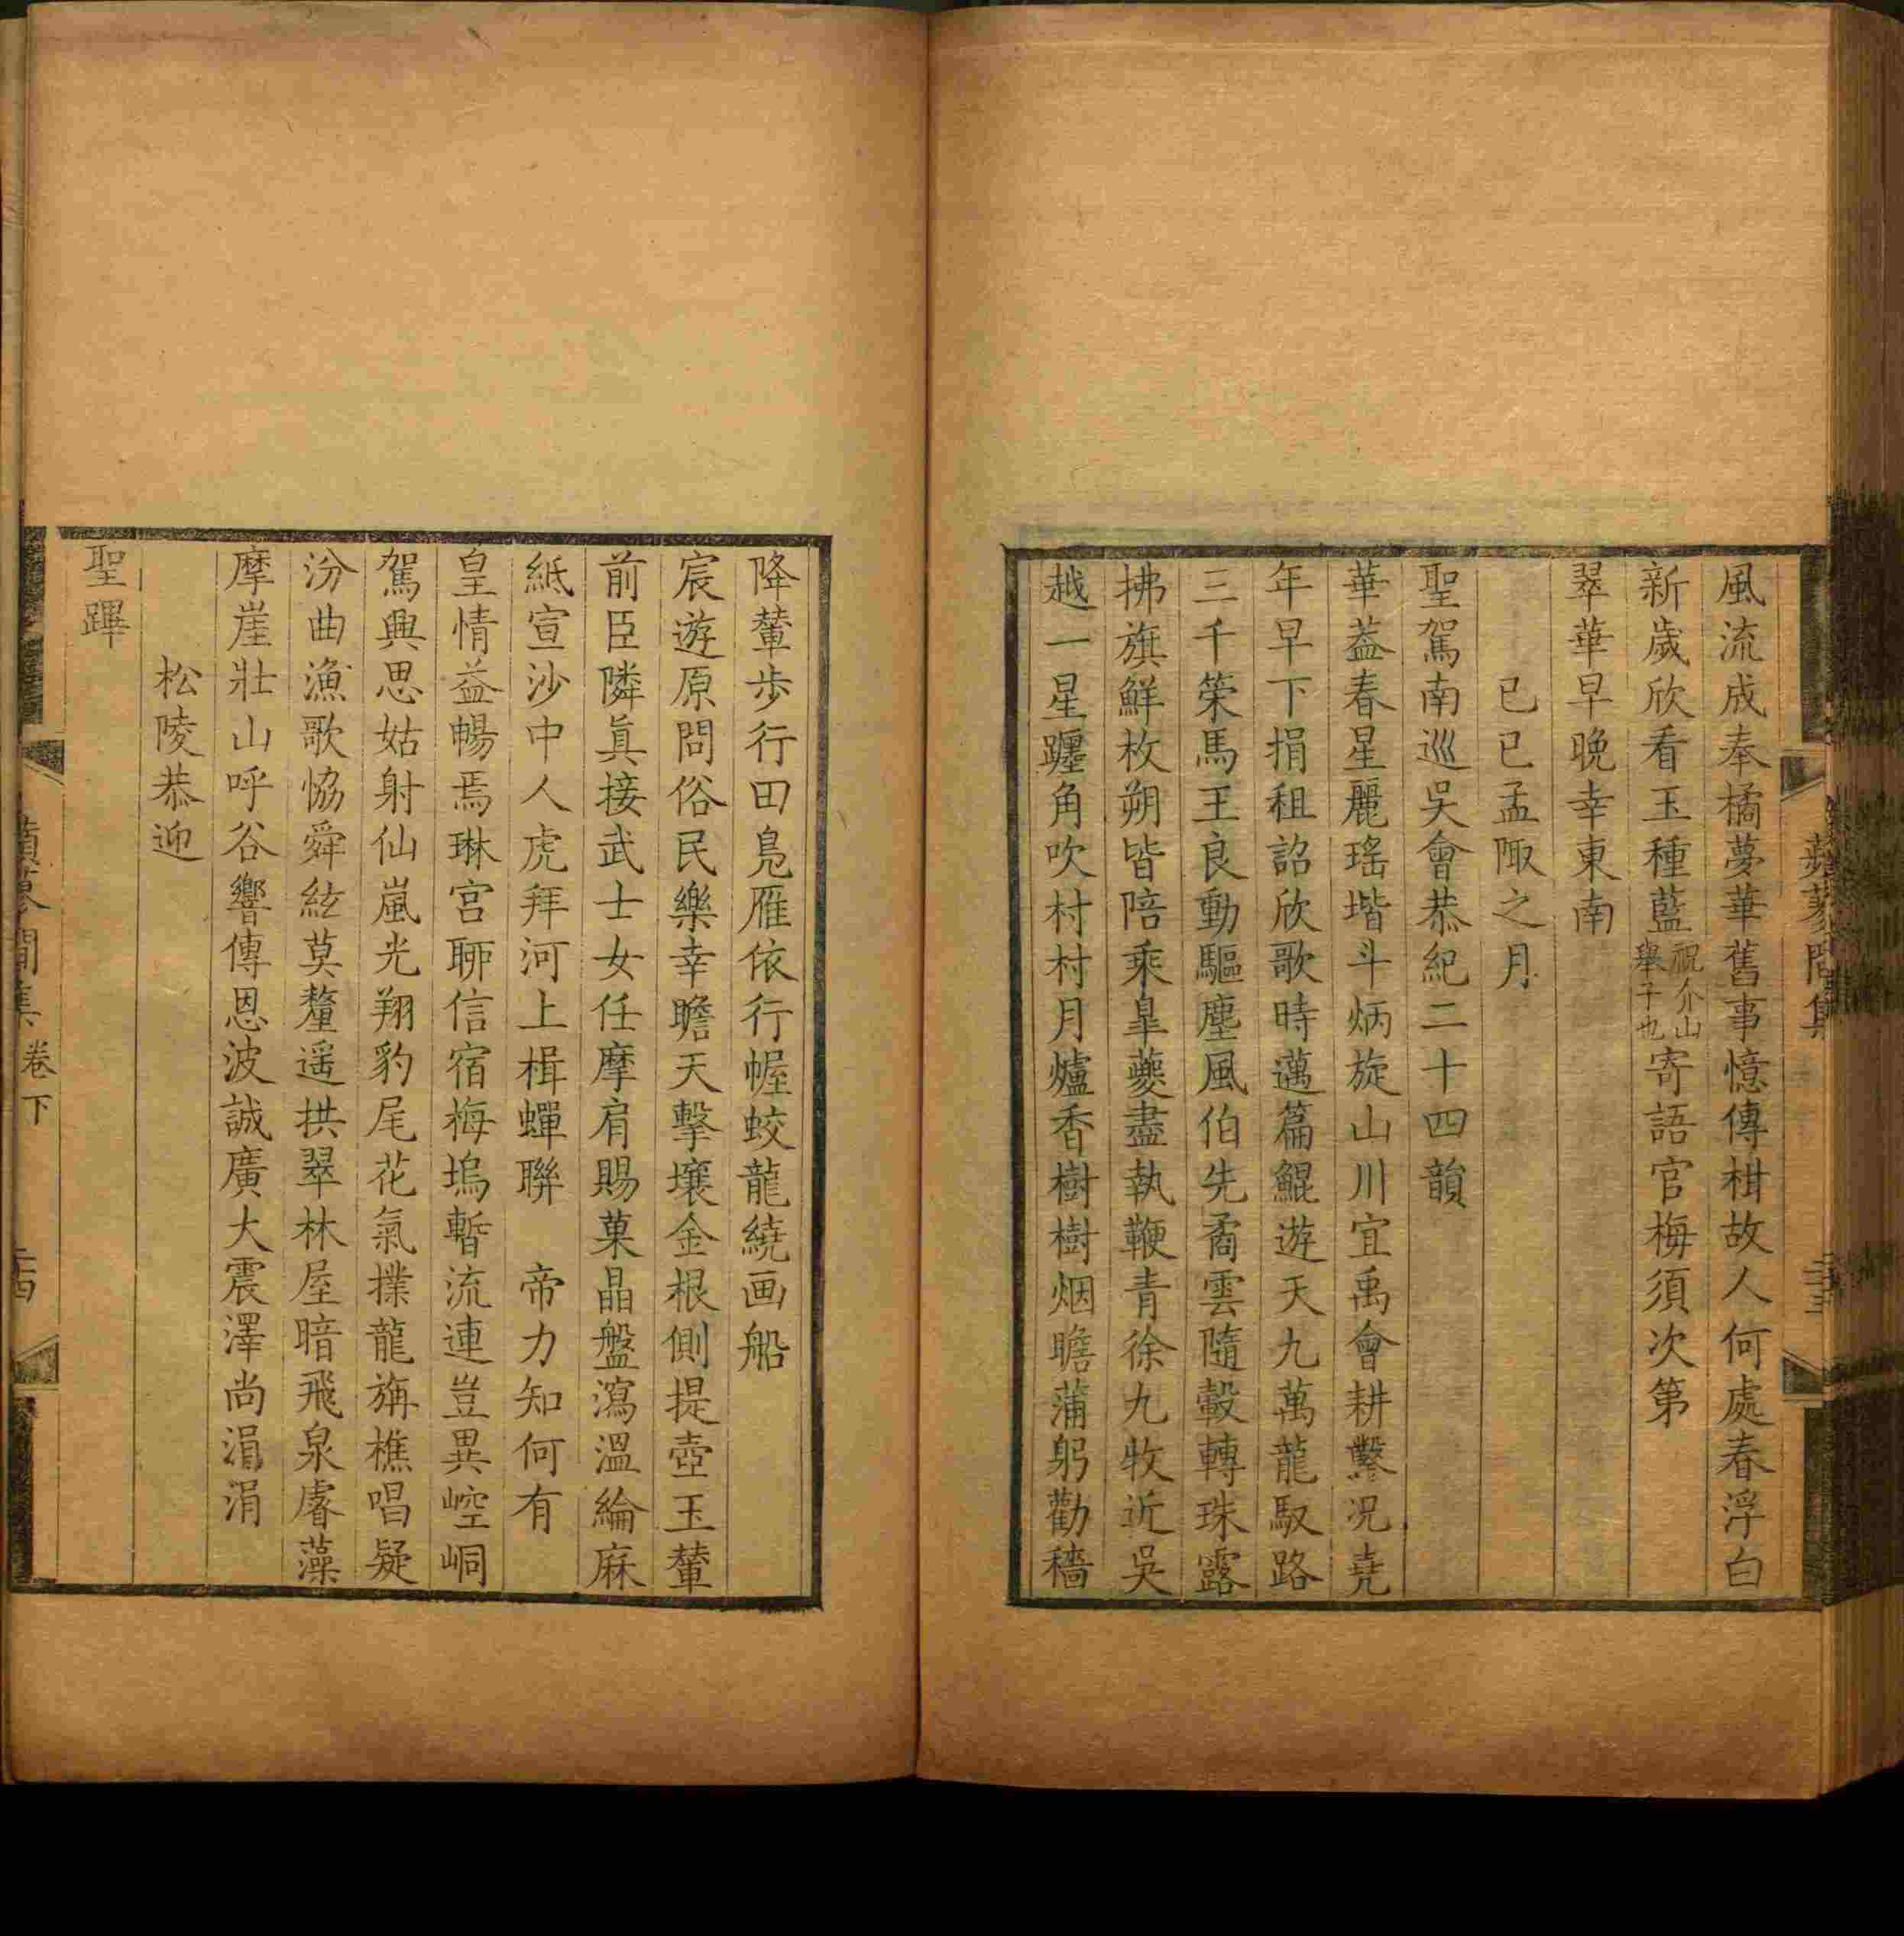 風流成奉橘夢華舊事憶傳柑故人何處春浮白
新歲欣看玉種藍祝介山舉子也寄語官梅須次第
翠華早晚幸東南
已已孟陬之月
聖駕南巡吳會恭紀二十四韻
華葢春星麗瑤堦斗炳旋山川宜禹會耕鑿況堯
年早下捐租詔欣歌時邁篇鯤遊天九萬龍馭路
三千策馬王良動驅塵風伯先矞雲隨轂轉珠露
拂旗鮮枚朔皆陪乘臯夔盡執鞭青徐九牧近吳
越一星躔角吹村村月爐香樹樹烟瞻蒲躬勸穡
降輦步行田鳧雁依行幄蛟龍繞画船
宸遊原問俗民樂幸瞻天擊壤金根側提壺玉輦
前臣隣眞接武士女任摩肩賜菓晶盤瀉溫綸麻
紙宣沙中人虎拜河上楫蟬聯　帝力知何有
皇情益暢焉琳宮聊信宿梅塢暫流連豈異崆峒
駕興思姑射仙嵐光翔豹尾花氣撲龍旃樵唱疑
汾曲漁歌恊舜絃莫釐遥拱翠林屋暗飛泉睿藻
摩崖壯山呼谷響傳恩波誠廣大震澤尚涓涓
松陵恭迎
聖蹕
卷下